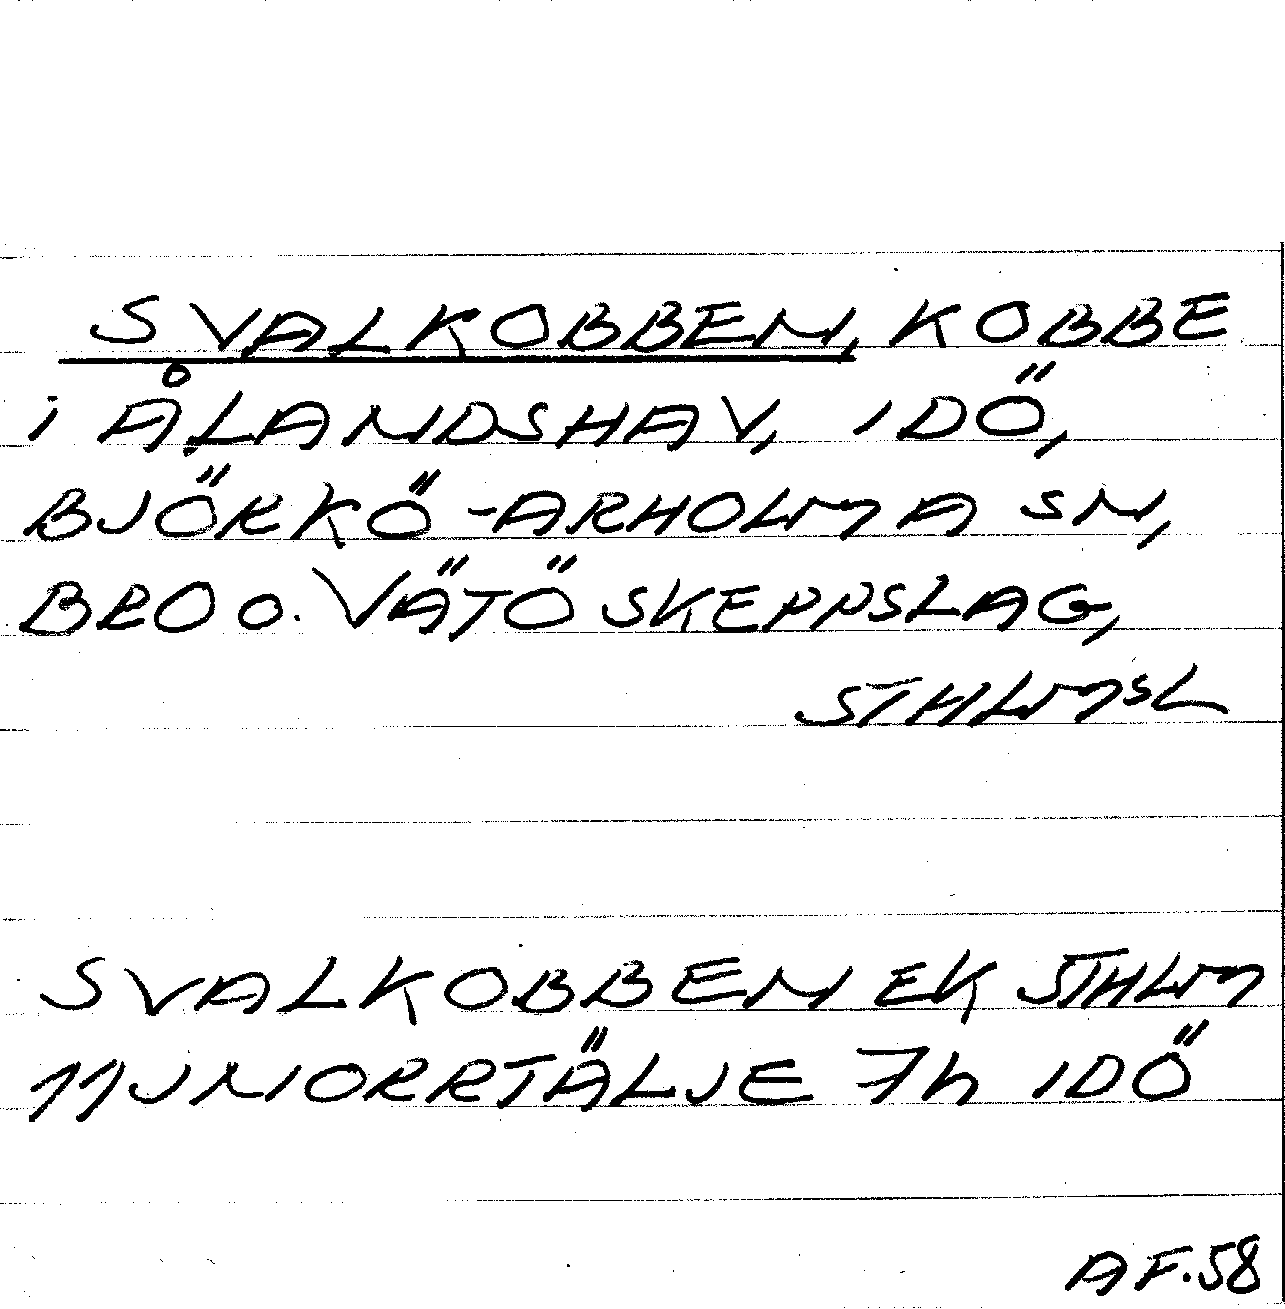 SVALKOBBEN, KOBBE
i ÅLANDSHAV, IDÖ,
BJÖRKÖ-ARHOLMA SN,
BRO o. VÄTÖ SKEPPSLAG,
STHLMSL
SVALKOBBEN EK STHLM
11J NORRTÄLJE 7h IDÖ
AF.58